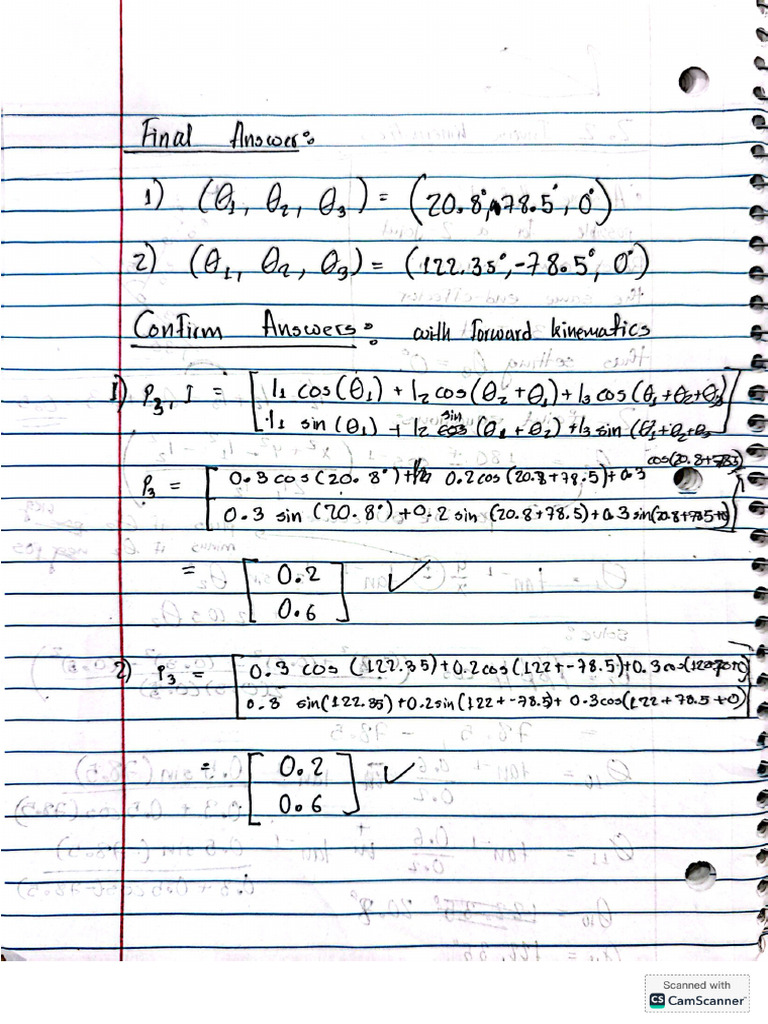 Final Answer:
1) (θ₁, θ₂, θ₃) = (20.8°, 78.5°, 0°)
2) (θ₁, θ₂, θ₃) = (122.35°, -78.5°, 0°)
Confirm Answers: with forward kinematics
1) P₃, I = [ l₁ cos(θ₁) + l₂ cos(θ₂+θ₁) + l₃ cos(θ₁+θ₂+θ₃)
l₁ sin(θ₁) + l₂ sin (θ₁+θ₂) + l₃ sin(θ₁+θ₂+θ₃ ]
P₃ = [ 0.3 cos(20.8°) + 0.2 cos(20.8+78.5) + 0.3 cos(20.8+78.5)
0.3 sin (20.8°) + 0.2 sin (20.8+78.5) + 0.3 sin(20.8+78.5+0) ]
= [ 0.2 ✓
0.6 ]
2) P₃ = [ 0.3 cos (122.35) + 0.2 cos(122+-78.5) + 0.3 cos
0.3 sin(122.35) + 0.2 sin(122+-78.5) + 0.3 cos(122+78.5+0) ]
= [ 0.2 ✓
0.6 ]
Scanned with
CS CamScanner